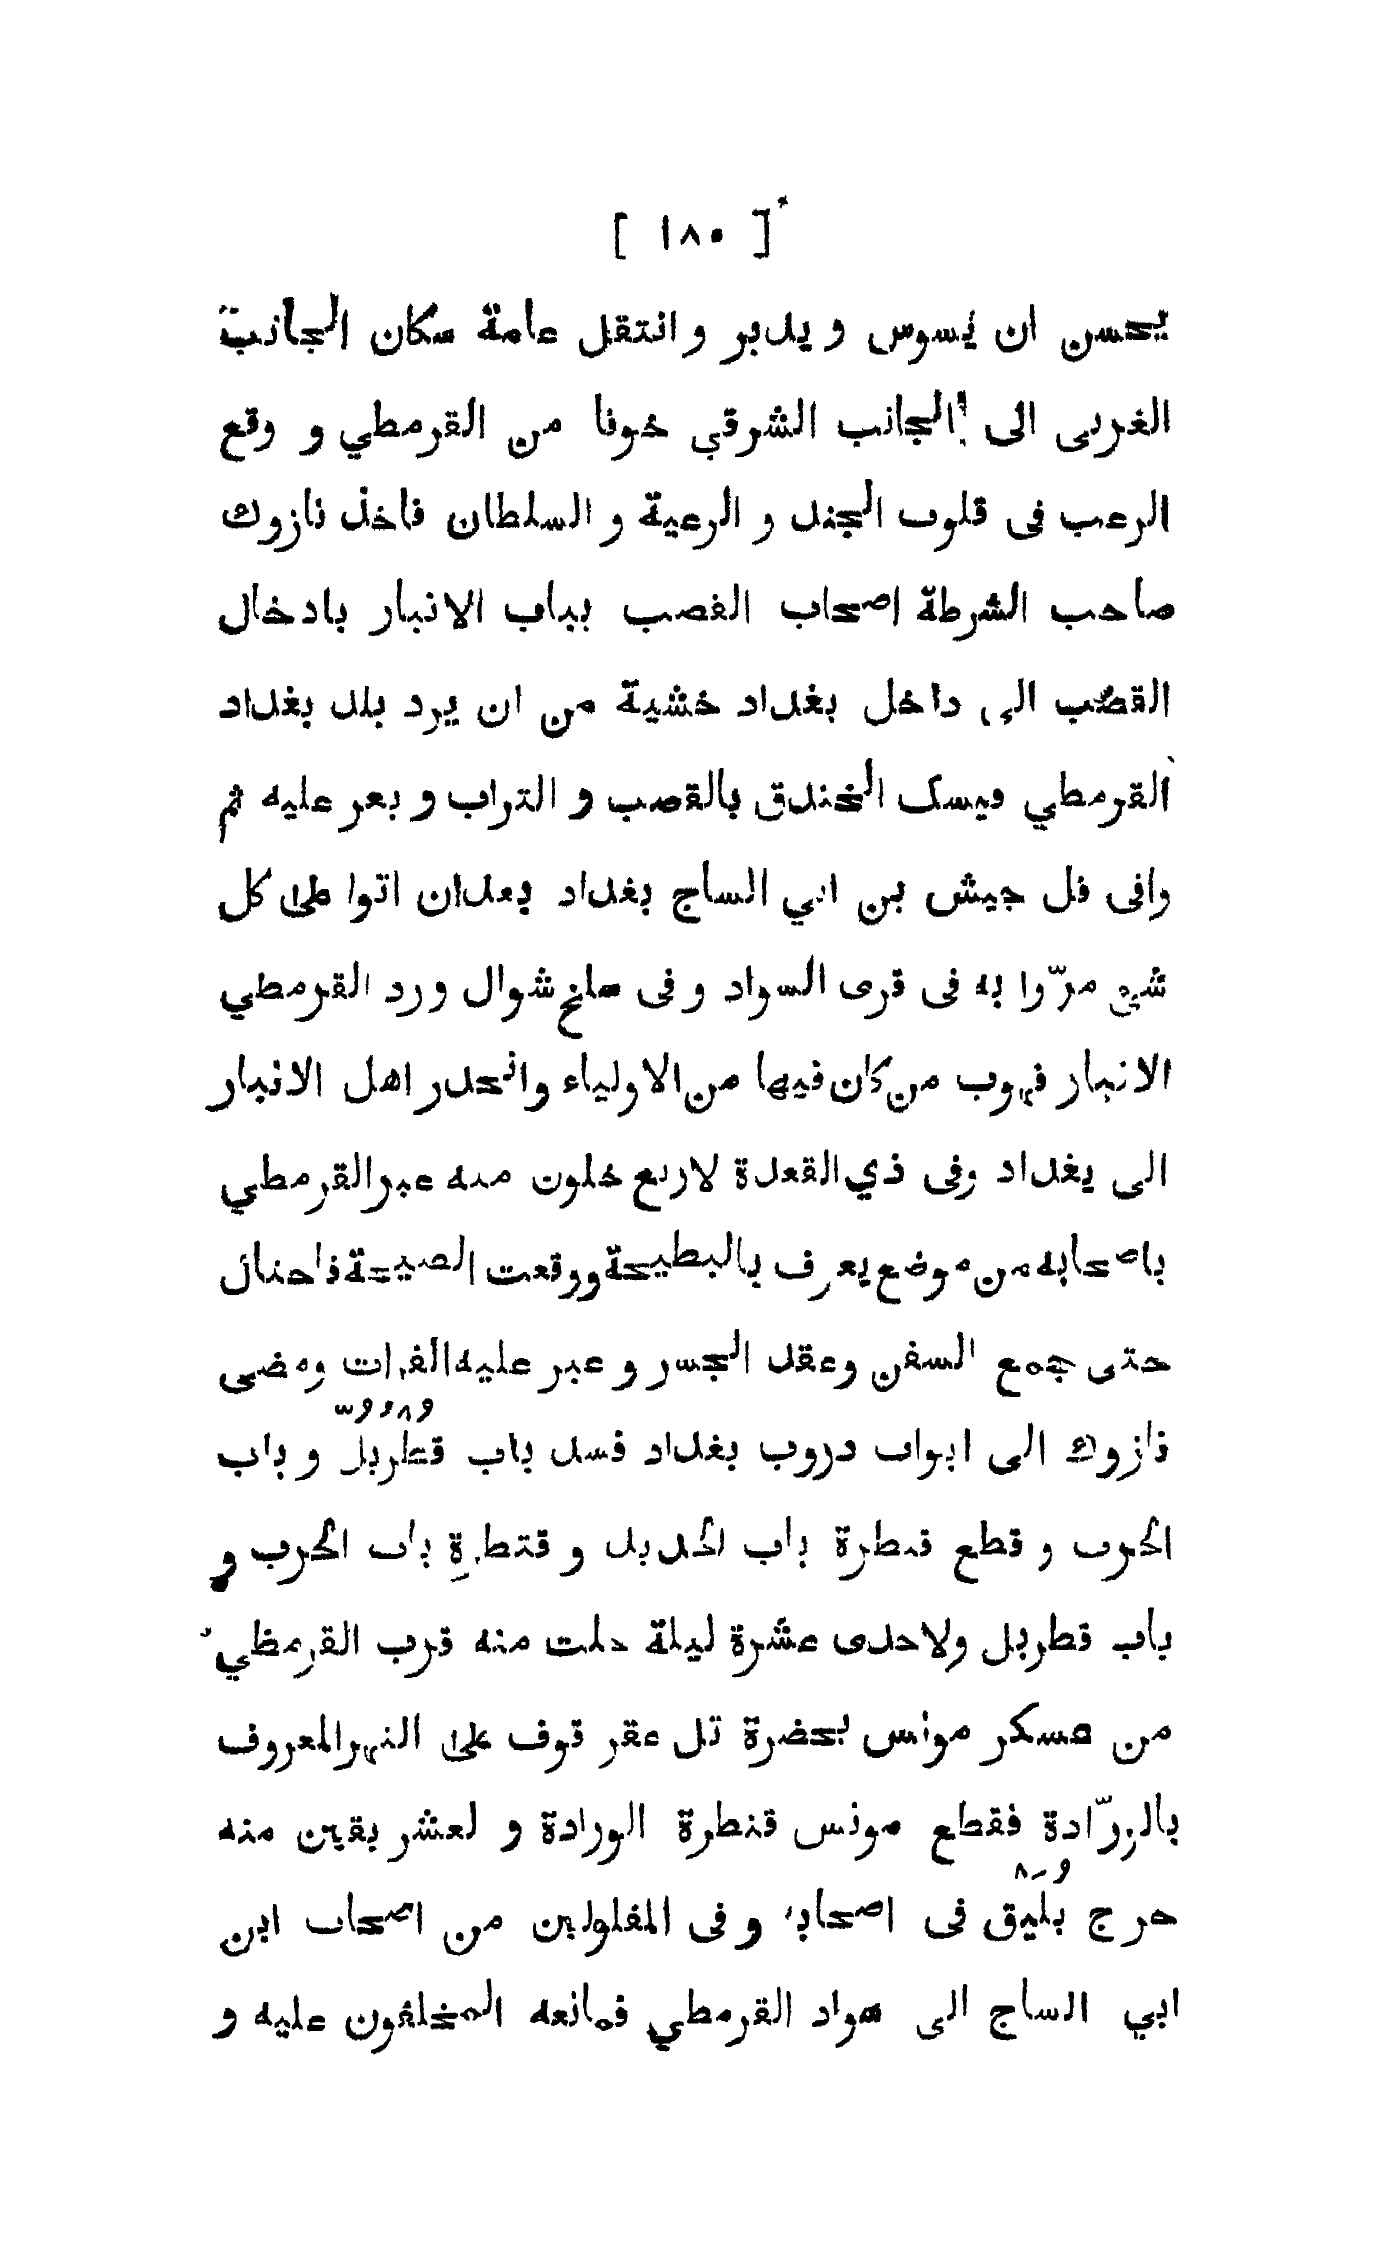 [ ١٨٠ ]
يحسن ان يسوس و يدبر و انتقل عامة سكان الجانب
الغربى الى الجانب الشرقي خوفا من القرمطي و وقع
الرعب فى قلوب الجند و الرعية و السلطان فاخذ نازوك
صاحب الشرطة اصحاب القصب بباب الانبار بادخال
القصب الى داخل بغداد خشية من ان يرد بلد بغداد
القرمطي فيسك الخندق بالقصب و التراب و بعر عليه ثم
وافى فل جيش بن ابي الساج بغداد بعدان اتوا على كل
شيء مرّوا به فى قرى السواد و فى سلخ شوال ورد القرمطي
الانبار فهرب من كان فيها من الاولياء وانحدر اهل الانبار
الى بغداد وفى ذي القعدة لاربع خلون منه عبر القرمطي
باصحابه من موضع يعرف بالبطيحة ووقعت الصيحة فاحتال
حتى جمع السفن وعقد الجسر و عبر عليه الفرات ومضى
نازوك الى ابواب دروب بغداد فسد باب قُطْرُبُلّ و باب
الحرب و قطع قنطرة باب الحديد و قنطرة باب الحرب و
باب قطربل ولاحدى عشرة ليلة خلت منه قرب القرمطي
من عسكر مونس بحضرة تل عقر قوف على النهر المعروف
بالزرّادة فقطع مونس قنطرة الورادة و لعشر بقين منه
خرج بُلَيْق فى اصحابه و فى المفلولين من اصحاب ابن
ابي الساج الى سواد القرمطي فمانعه المخلفون عليه و